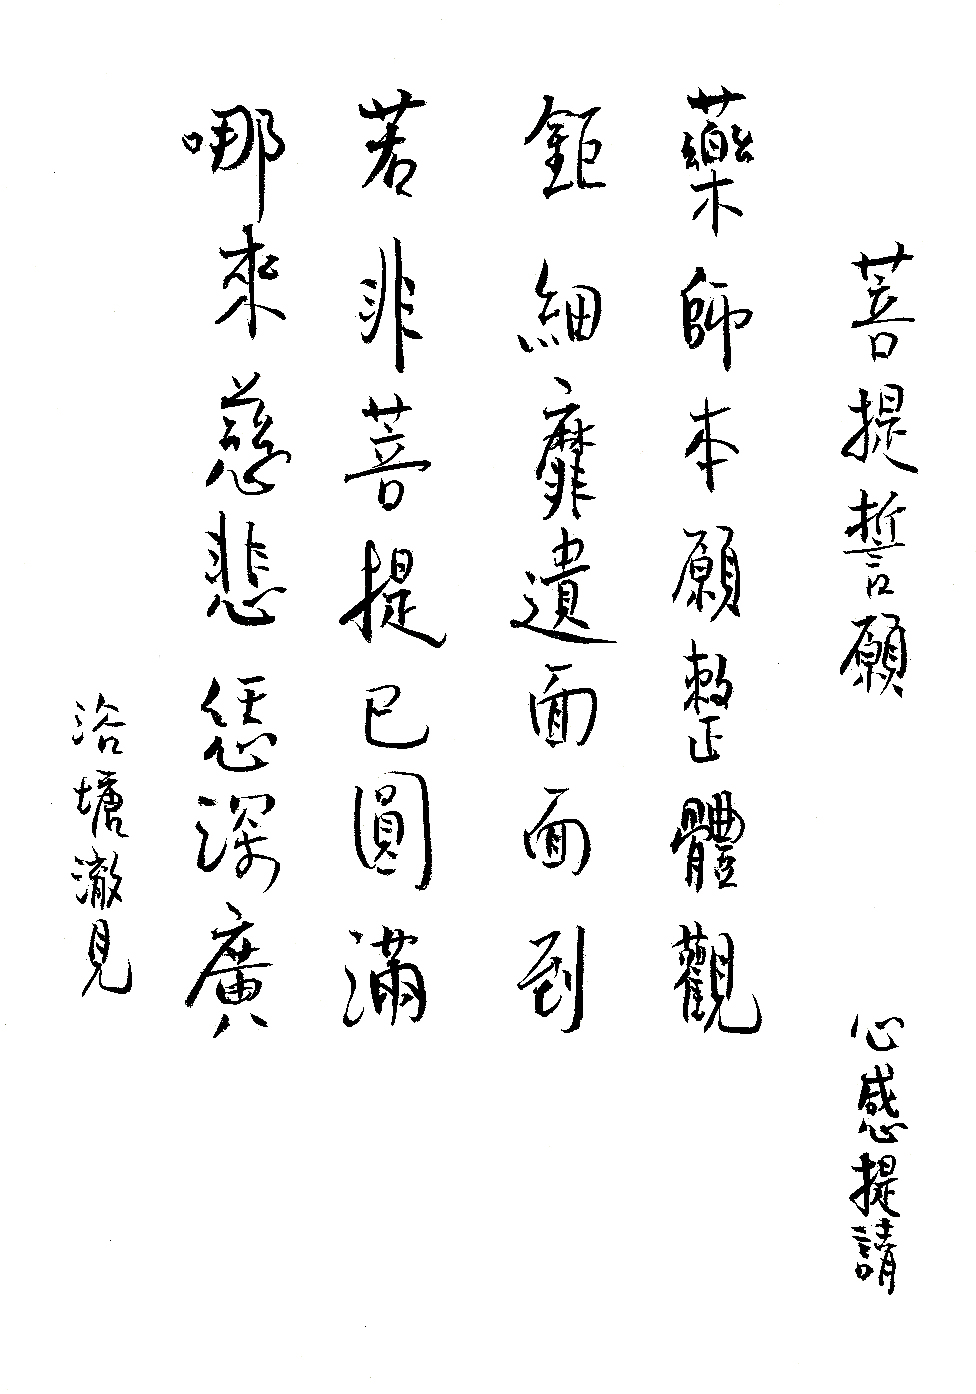 菩提誓願
心感提請
藥師本願整體觀
鉅細靡遺面面到
若非菩提已圓滿
哪來慈悲恁深廣
浴塘澈見